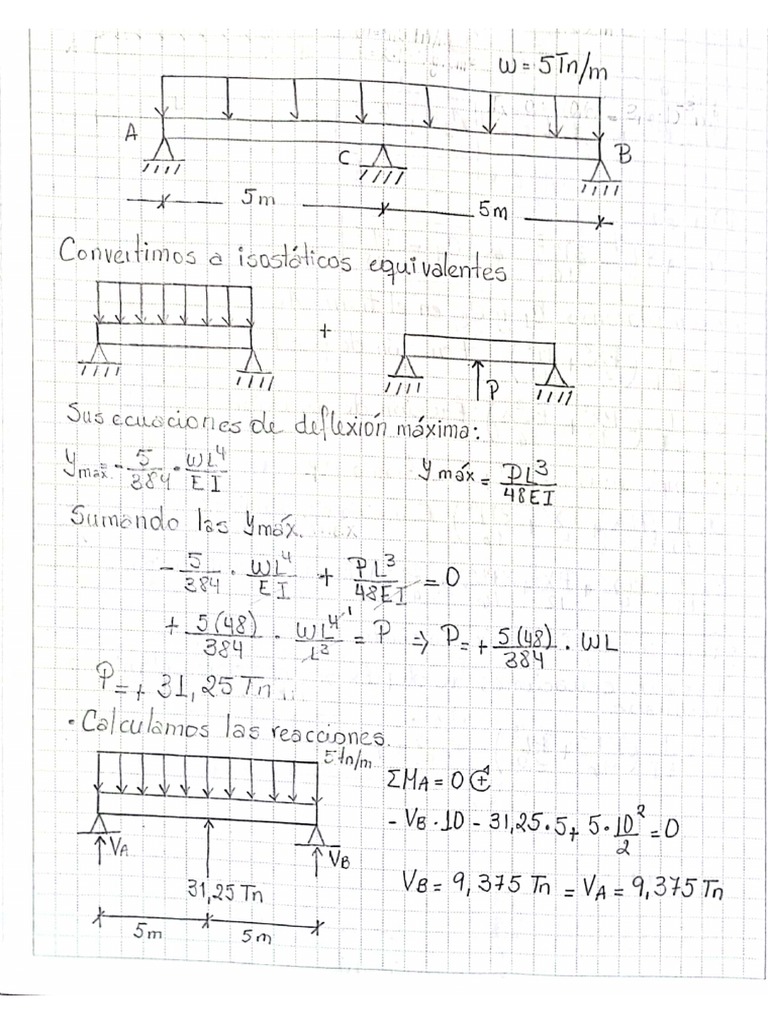 W = 5Tn/m
A
C
B
5m
5m
Convertimos a isostáticos equivalentes
+
P
Sus ecuaciones de deflexión máxima:
ymáx = - 5/384 · WL⁴/EI
ymáx = PL³/48EI
Sumando las ymáx.
- 5/384 · WL⁴/EI + PL³/48EI = 0
+ 5(48)/384 · WL⁴/L³ ¹ = P ⇒ P = + 5(48)/384 · WL
P = + 31,25 Tn
• Calculamos las reacciones.
5tn/m
VA
VB
31,25 Tn
5m
5m
ΣMA = 0 ↺+
- VB · 10 - 31,25 · 5 + 5 · 10²/2 = 0
VB = 9,375 Tn = VA = 9,375 Tn